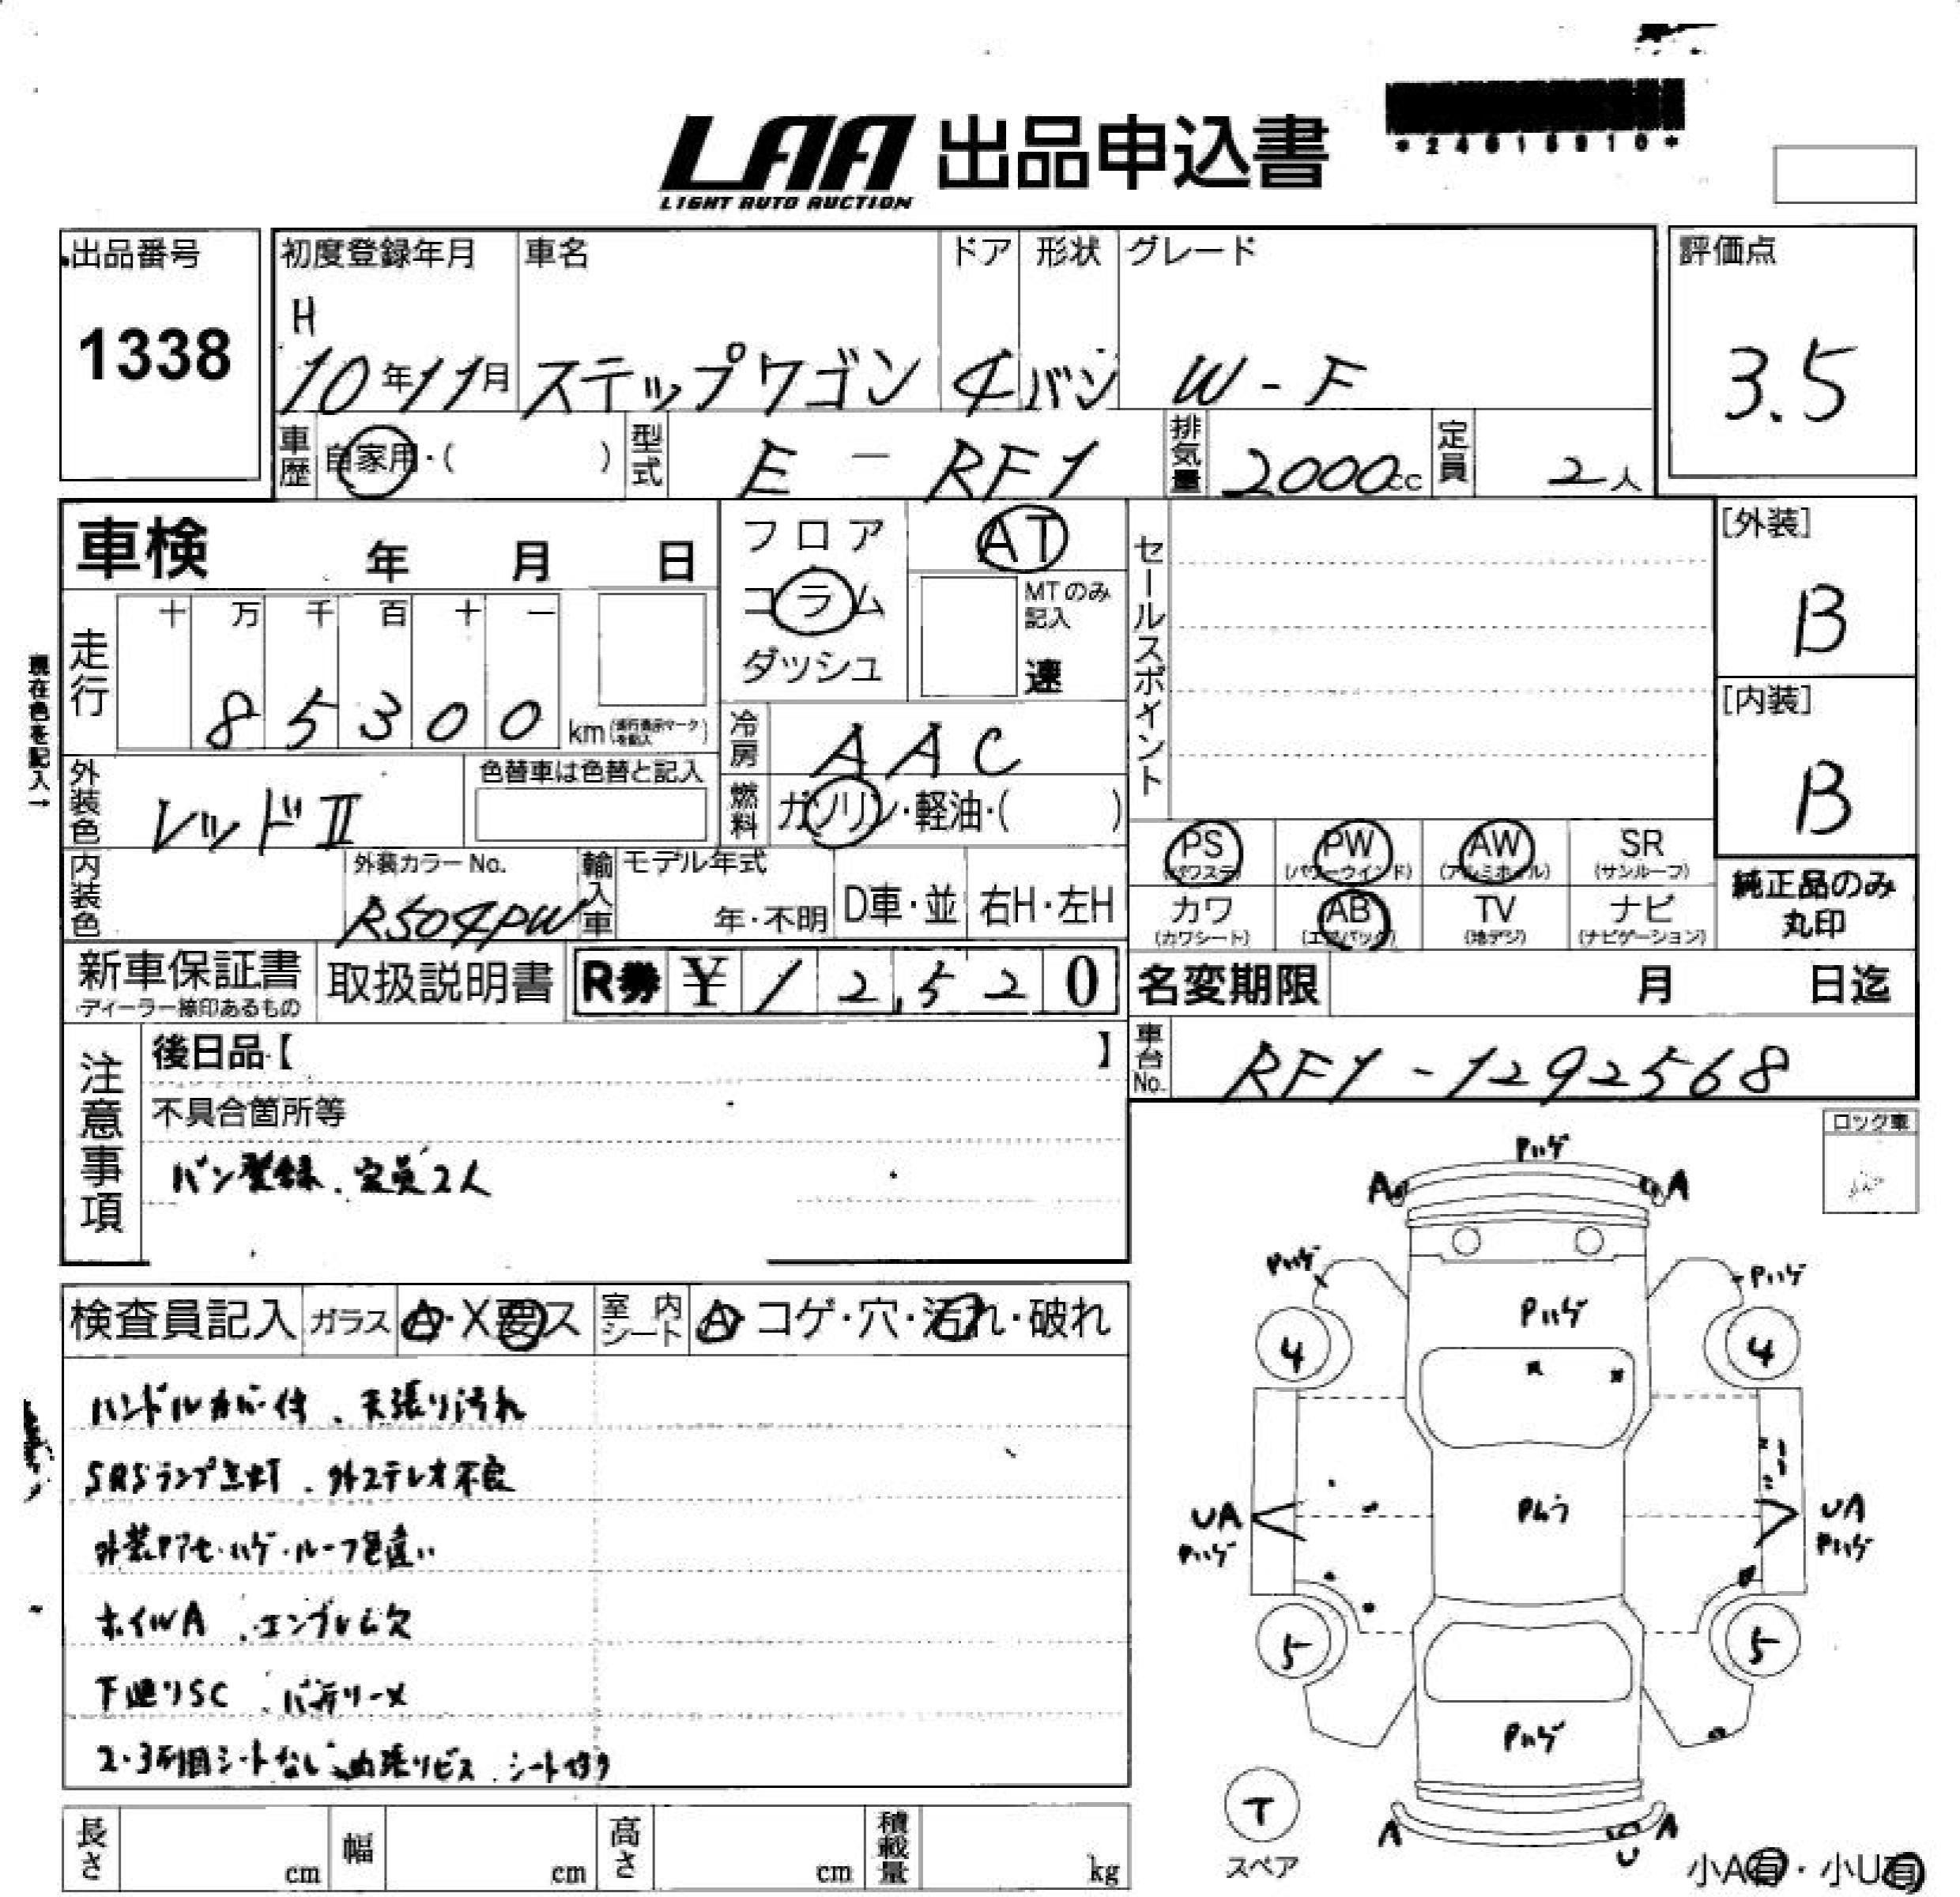 LAA 出品申込書
LIGHT AUTO AUCTION
*24015910*
出品番号
1338
初度登録年月 車名 ドア 形状 グレード
H
10年11月 ステップワゴン 4 バン W-F
評価点
3.5
車歴 自家用・( ) 型式 E-RF1 排気量 2000cc 定員 2人
車検 年 月 日
フロア
コラム
ダッシュ
AT
MTのみ記入
速
セールスポイント
[外装]
B
[内装]
B
現在色を記入→
走行 十 万 千 百 十 一
8 5 3 0 0 km
冷房 AAC
燃料 ガソリン・軽油・( )
外装色 レッドⅡ 色替車は色替と記入
PS PW AW SR
(パワステ) (パワーウインド) (アルミホイル) (サンルーフ)
カワ AB TV ナビ
(カワシート) (エアバック) (地デジ) (ナビゲーション)
純正品のみ
丸印
内装色 外装カラーNo. R504PW 輸入車 モデル年式 年・不明 D車・並 右H・左H
新車保証書
ディーラー捺印あるもの
取扱説明書 R券 ¥12,520
名変期限 月 日迄
車台No. RF1-1292568
注意事項
後日品【 】
不具合箇所等
バン登録、定員2人
ロック車
検査員記入 ガラス A・X要ス 室内シート A・コゲ・穴・汚れ・破れ
ハンドルカバー付、天張り汚れ
SRSランプ点灯、外ステレオ不良
外装アセ・ハゲ・ルーフ色違い
ホイルA、エンブレム欠
下廻りSC、バッテリーメ
2・3列目シートなし、内張りビス、シート
Pハゲ
A A
Pハゲ Pハゲ
Pハゲ
4 4
UA UA
Pハゲ Pハゲ
Pムラ
5 5
Pハゲ
T
スペア
A A
U
小A有・小U有
長さ cm 幅 cm 高さ cm 積載量 kg